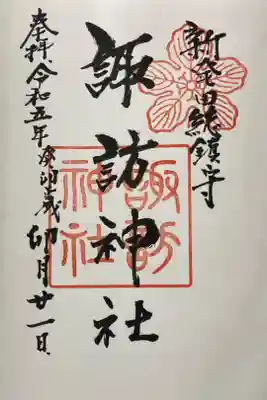 新発田総鎮守
諏訪神社
奉拝 令和五年癸卯歳 卯月廿一日
諏訪
神社